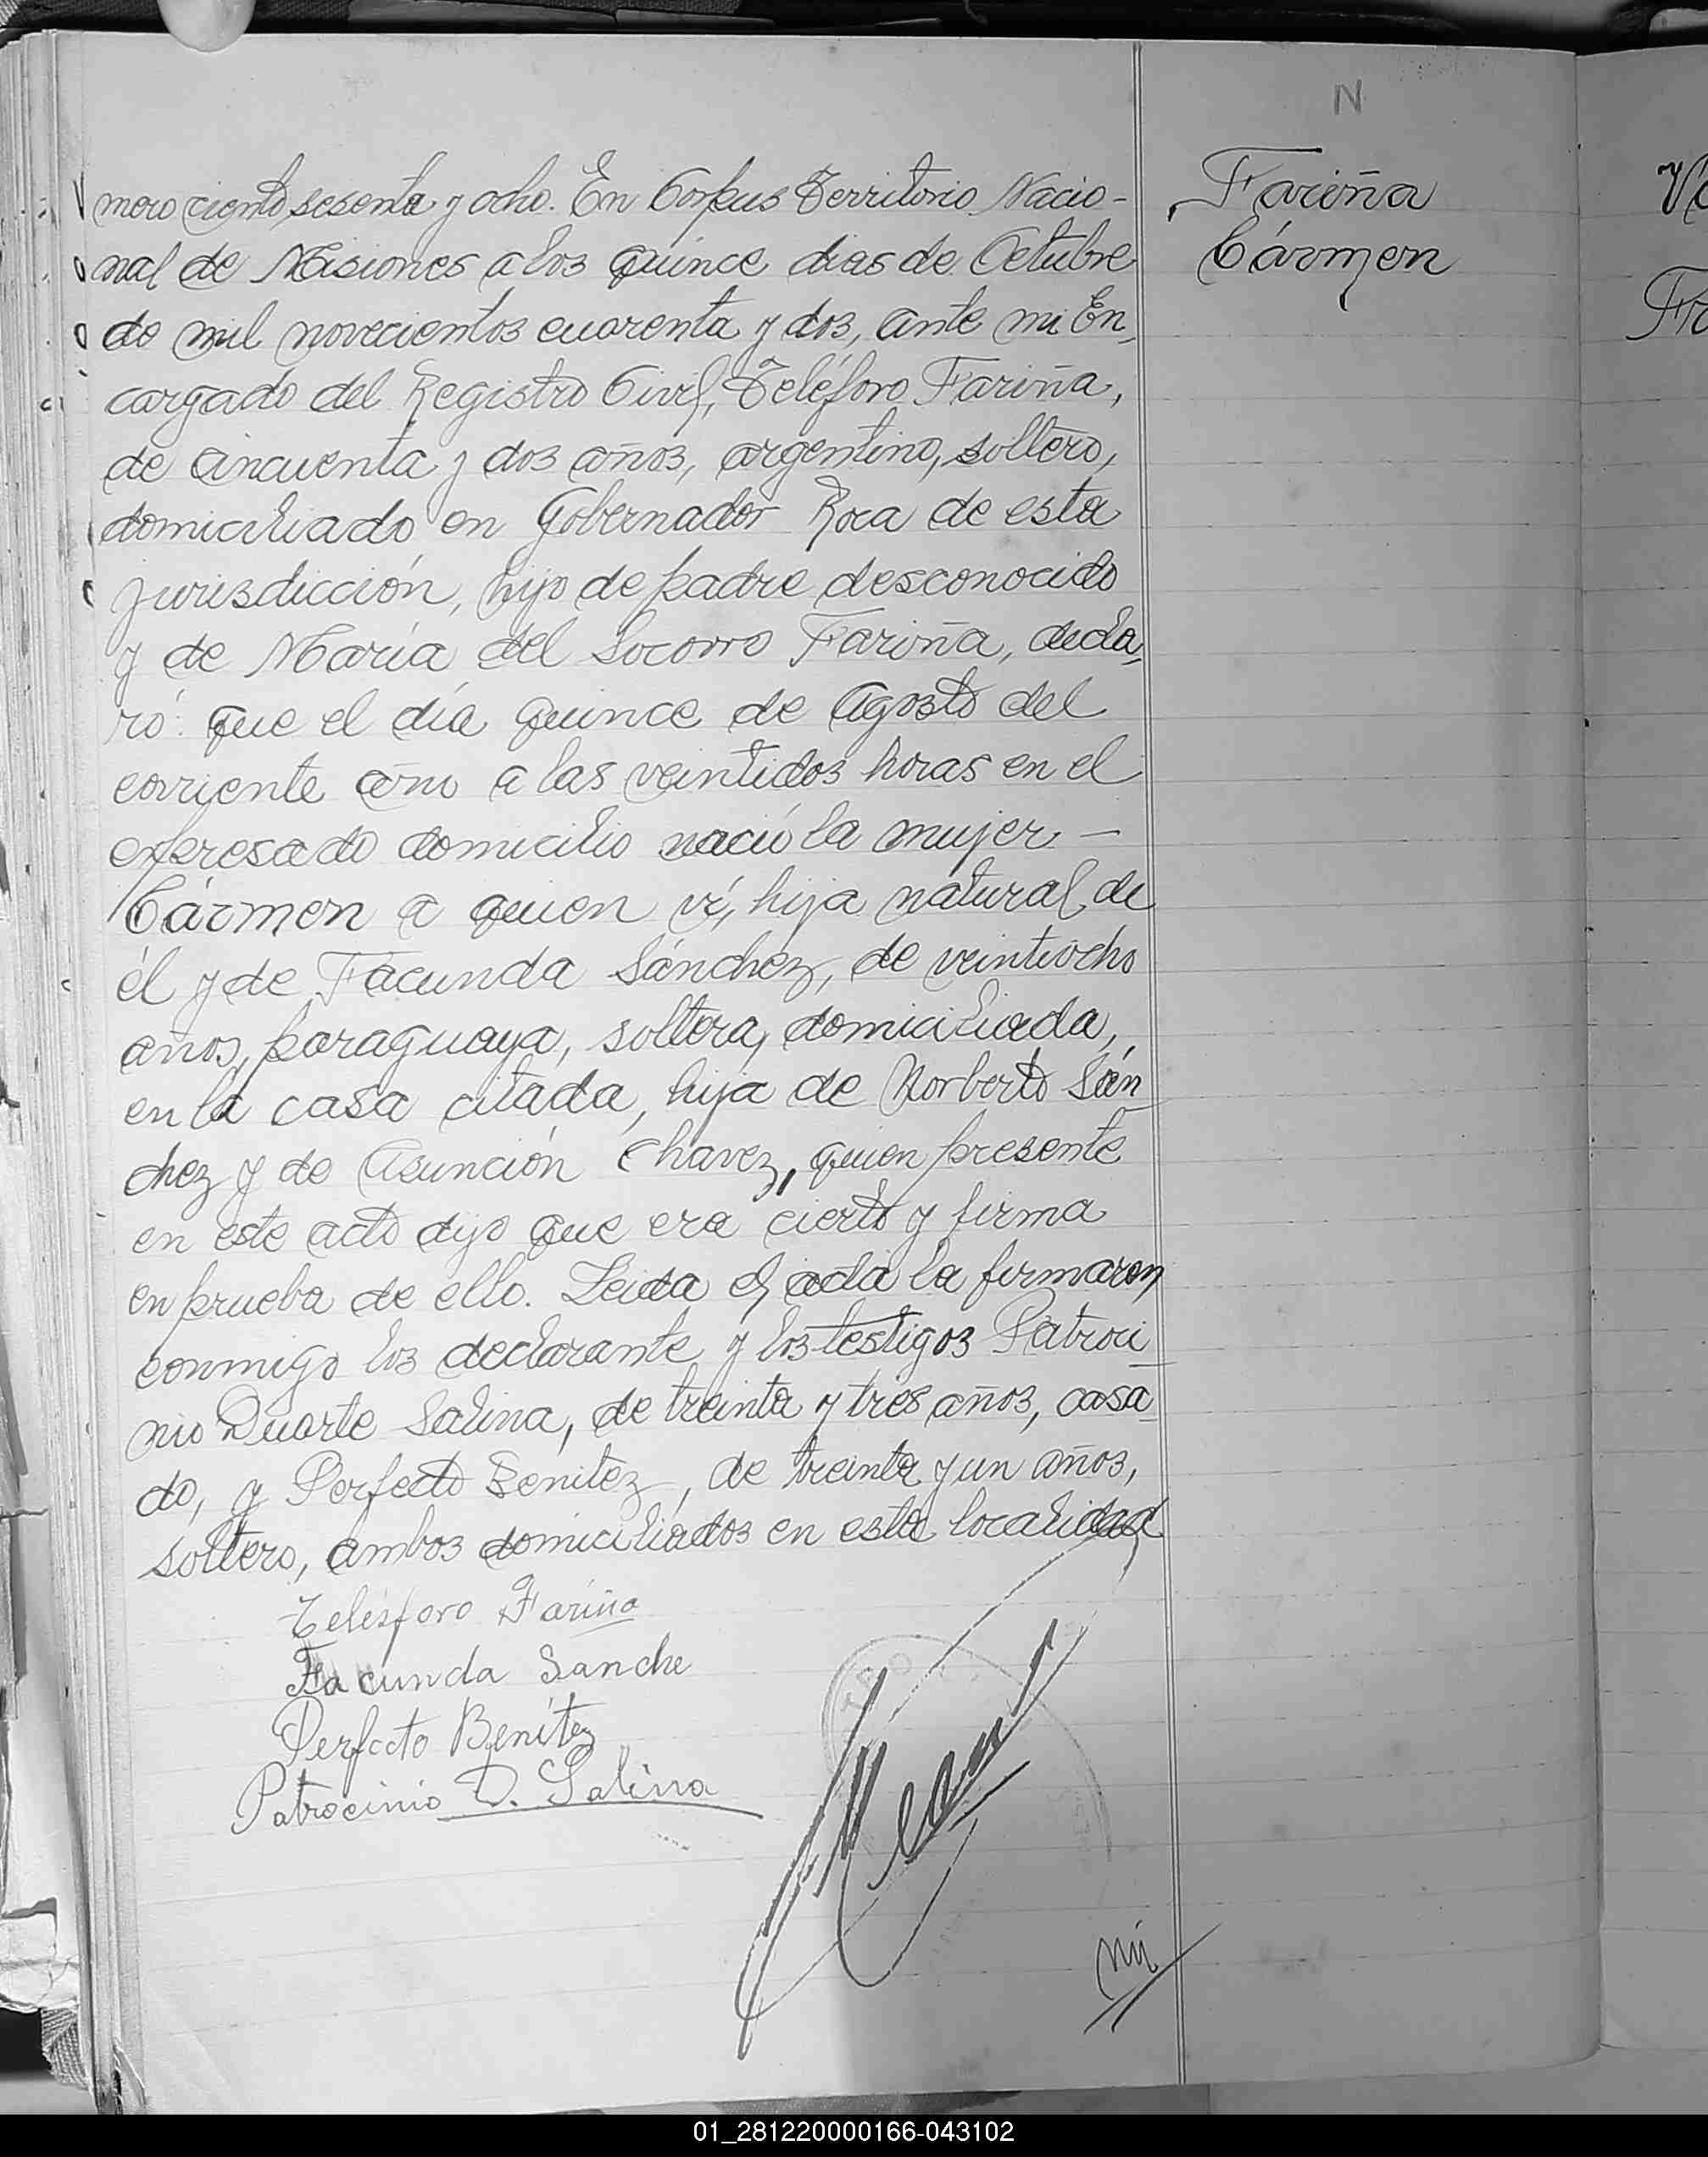 N
Fariña
Cármen
mero ciento sesenta y ocho. En Corpus Territorio Nacio-
nal de Misiones a los quince dias de Octubre
de mil novecientos cuarenta y dos, ante mi En
cargado del Registro Civil, Teléforo Fariña,
de cincuenta y dos años, argentino, soltero,
domiciliado en Gobernador Roca de esta
jurisdicción, hijo de padre desconocido
y de María del Socorro Fariña, decla
ró: que el día quince de Agosto del
corriente año a las veintidos horas en el
expresado domicilio nació la mujer —
Cármen a quien ví, hija natural de
él y de Facunda Sánchez, de veintiocho
años, paraguaya, soltera, domiciliada,
en la casa citada, hija de Norberto Sán
chez y de Asunción Chavez, quien presente
en este acto dijo que era cierto y firma
en prueba de ello. Leida el acta la firmaron
conmigo los declarante y los testigos Patroci
nio Duarte Salina, de treinta y tres años, casa
do, y Perfecto Benitez, de treinta y un años,
soltero, ambos domiciliados en esta localidad
Telésforo Fariña
Facunda Sanche
Perfecto Benítez
Patrocinio D. Salina
01_281220000166-043102